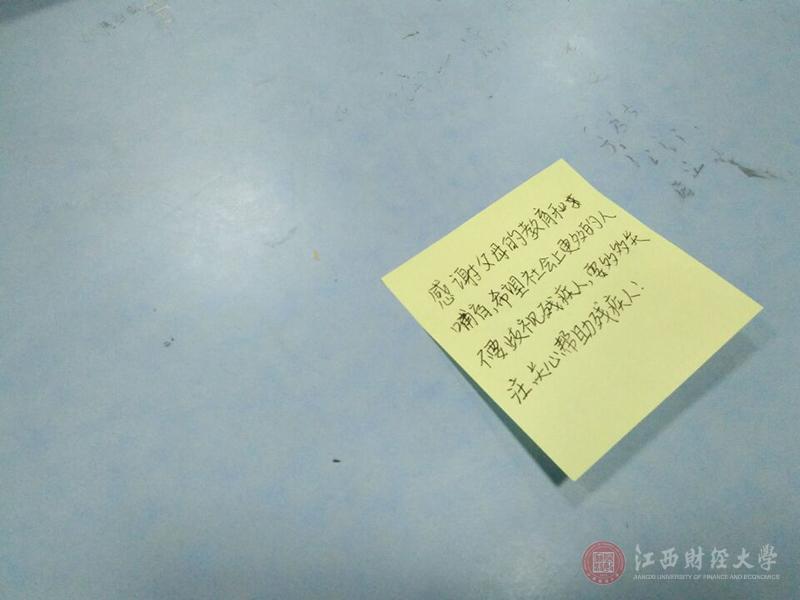 感谢父母的教育和
哺育,希望社会上更多的人
不要歧视残疾人,要多多关
注关心帮助残疾人!
江西财经大学
JIANGXI UNIVERSITY OF FINANCE AND ECONOMICS